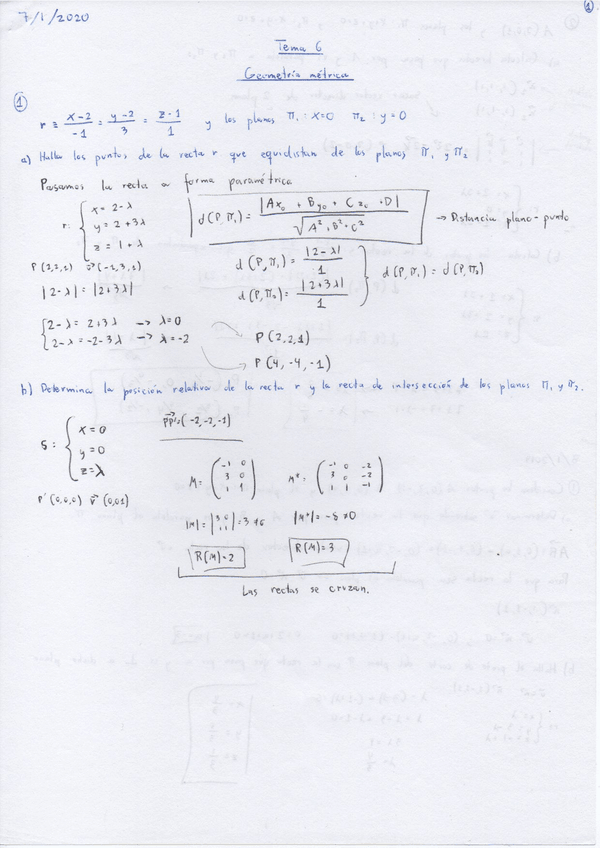 7/1/2020
①
Tema 6
Geometría métrica
①
r ≡ x-2/-1 = y-2/3 = z-1/1 y los planos π₁: x=0 π₂: y=0
a) Halla los puntos de la recta r que equidistan de los planos π₁ y π₂
Pasamos la recta a forma paramétrica
r: { x = 2-λ
y = 2+3λ
z = 1+λ
d(P,π₁) = |Ax₀ + By₀ + Cz₀ + D| / √A²+B²+C² → Distancia plano-punto
P(2,2,1) v⃗(-1,3,1)
d(P,π₁) = |2-λ|/1
d(P,π₂) = |2+3λ|/1 } d(P,π₁) = d(P,π₂)
|2-λ| = |2+3λ|
{ 2-λ = 2+3λ → λ=0
2-λ = -2-3λ → λ=-2
P(2,2,1)
P(4,-4,-1)
b) Determina la posición relativa de la recta r y la recta de intersección de los planos π₁ y π₂.
s: { x = 0
y = 0
z = λ
PP'=(-2,-2,-1)
P'(0,0,0) v⃗(0,0,1)
M = ( -1 0
3 0
1 1 )
M* = ( -1 0 -2
3 0 -2
1 1 -1 )
|M| = | 3 0
1 1 | = 3 ≠ 0
|M*| = -8 ≠ 0
R(M) = 2
R(M) = 3
Las rectas se cruzan.